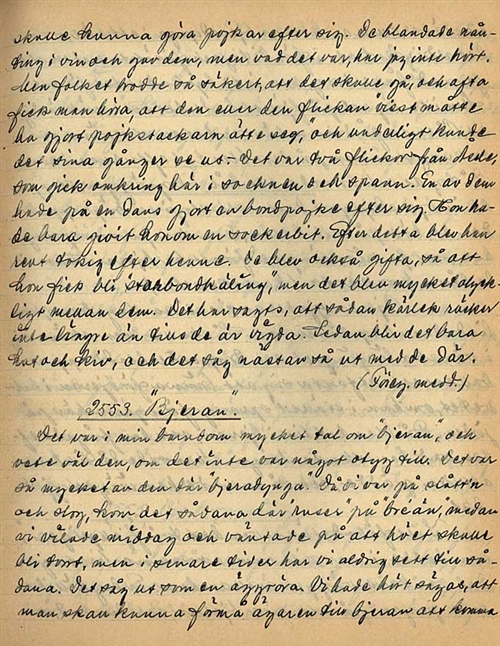 skulle kunna göra pojkar efter sig. De blandade nån-
ting i vin och gav dem, men vad det var, har jag inte hört.
Men folket trodde så säkert, att det skulle gå, och ofta
fick man höra, att den eller den flickan visst måtte
ha gjort pojkstackarn åtte seg," och underligt kunde
det sina gånger se ut. – Det var två flickor från
som gick omkring här i socknen och spann. En av dem
hade på en dans gjort en bondpojke efter sig. Hon ha-
de bara givit honom en sockerbit. Efter detta blev han
rent tokig efter henne. De blev också gifta, så att
hon fick bli "storbondkäling", men det blev mycket olyck-
ligt mellan dem. Det har sagts, att sådan kärlek räcker
inte längre än tills de är vigda. Sedan blir det bara
hat och kiv, och det såg nästan så ut med de där.
(Föreg. medd.)
2553. "Bjeran".
Det var i min barndom mycket tal om "bjeran", och
vete vär den, om det inte var något otyg till. Det var
så mycket av den där bjeradynga. Då vi var på slått'n
och slog, kom det sådana där ruser på breän, medan
vi vilade middag och väntade på att höet skulle
bli torrt, men i senare tider har vi aldrig sett till så-
dana. Det såg ut som en äggröra. Vi hade hört sägas, att
man skan kunna förmå ägaren till bjeran att komma